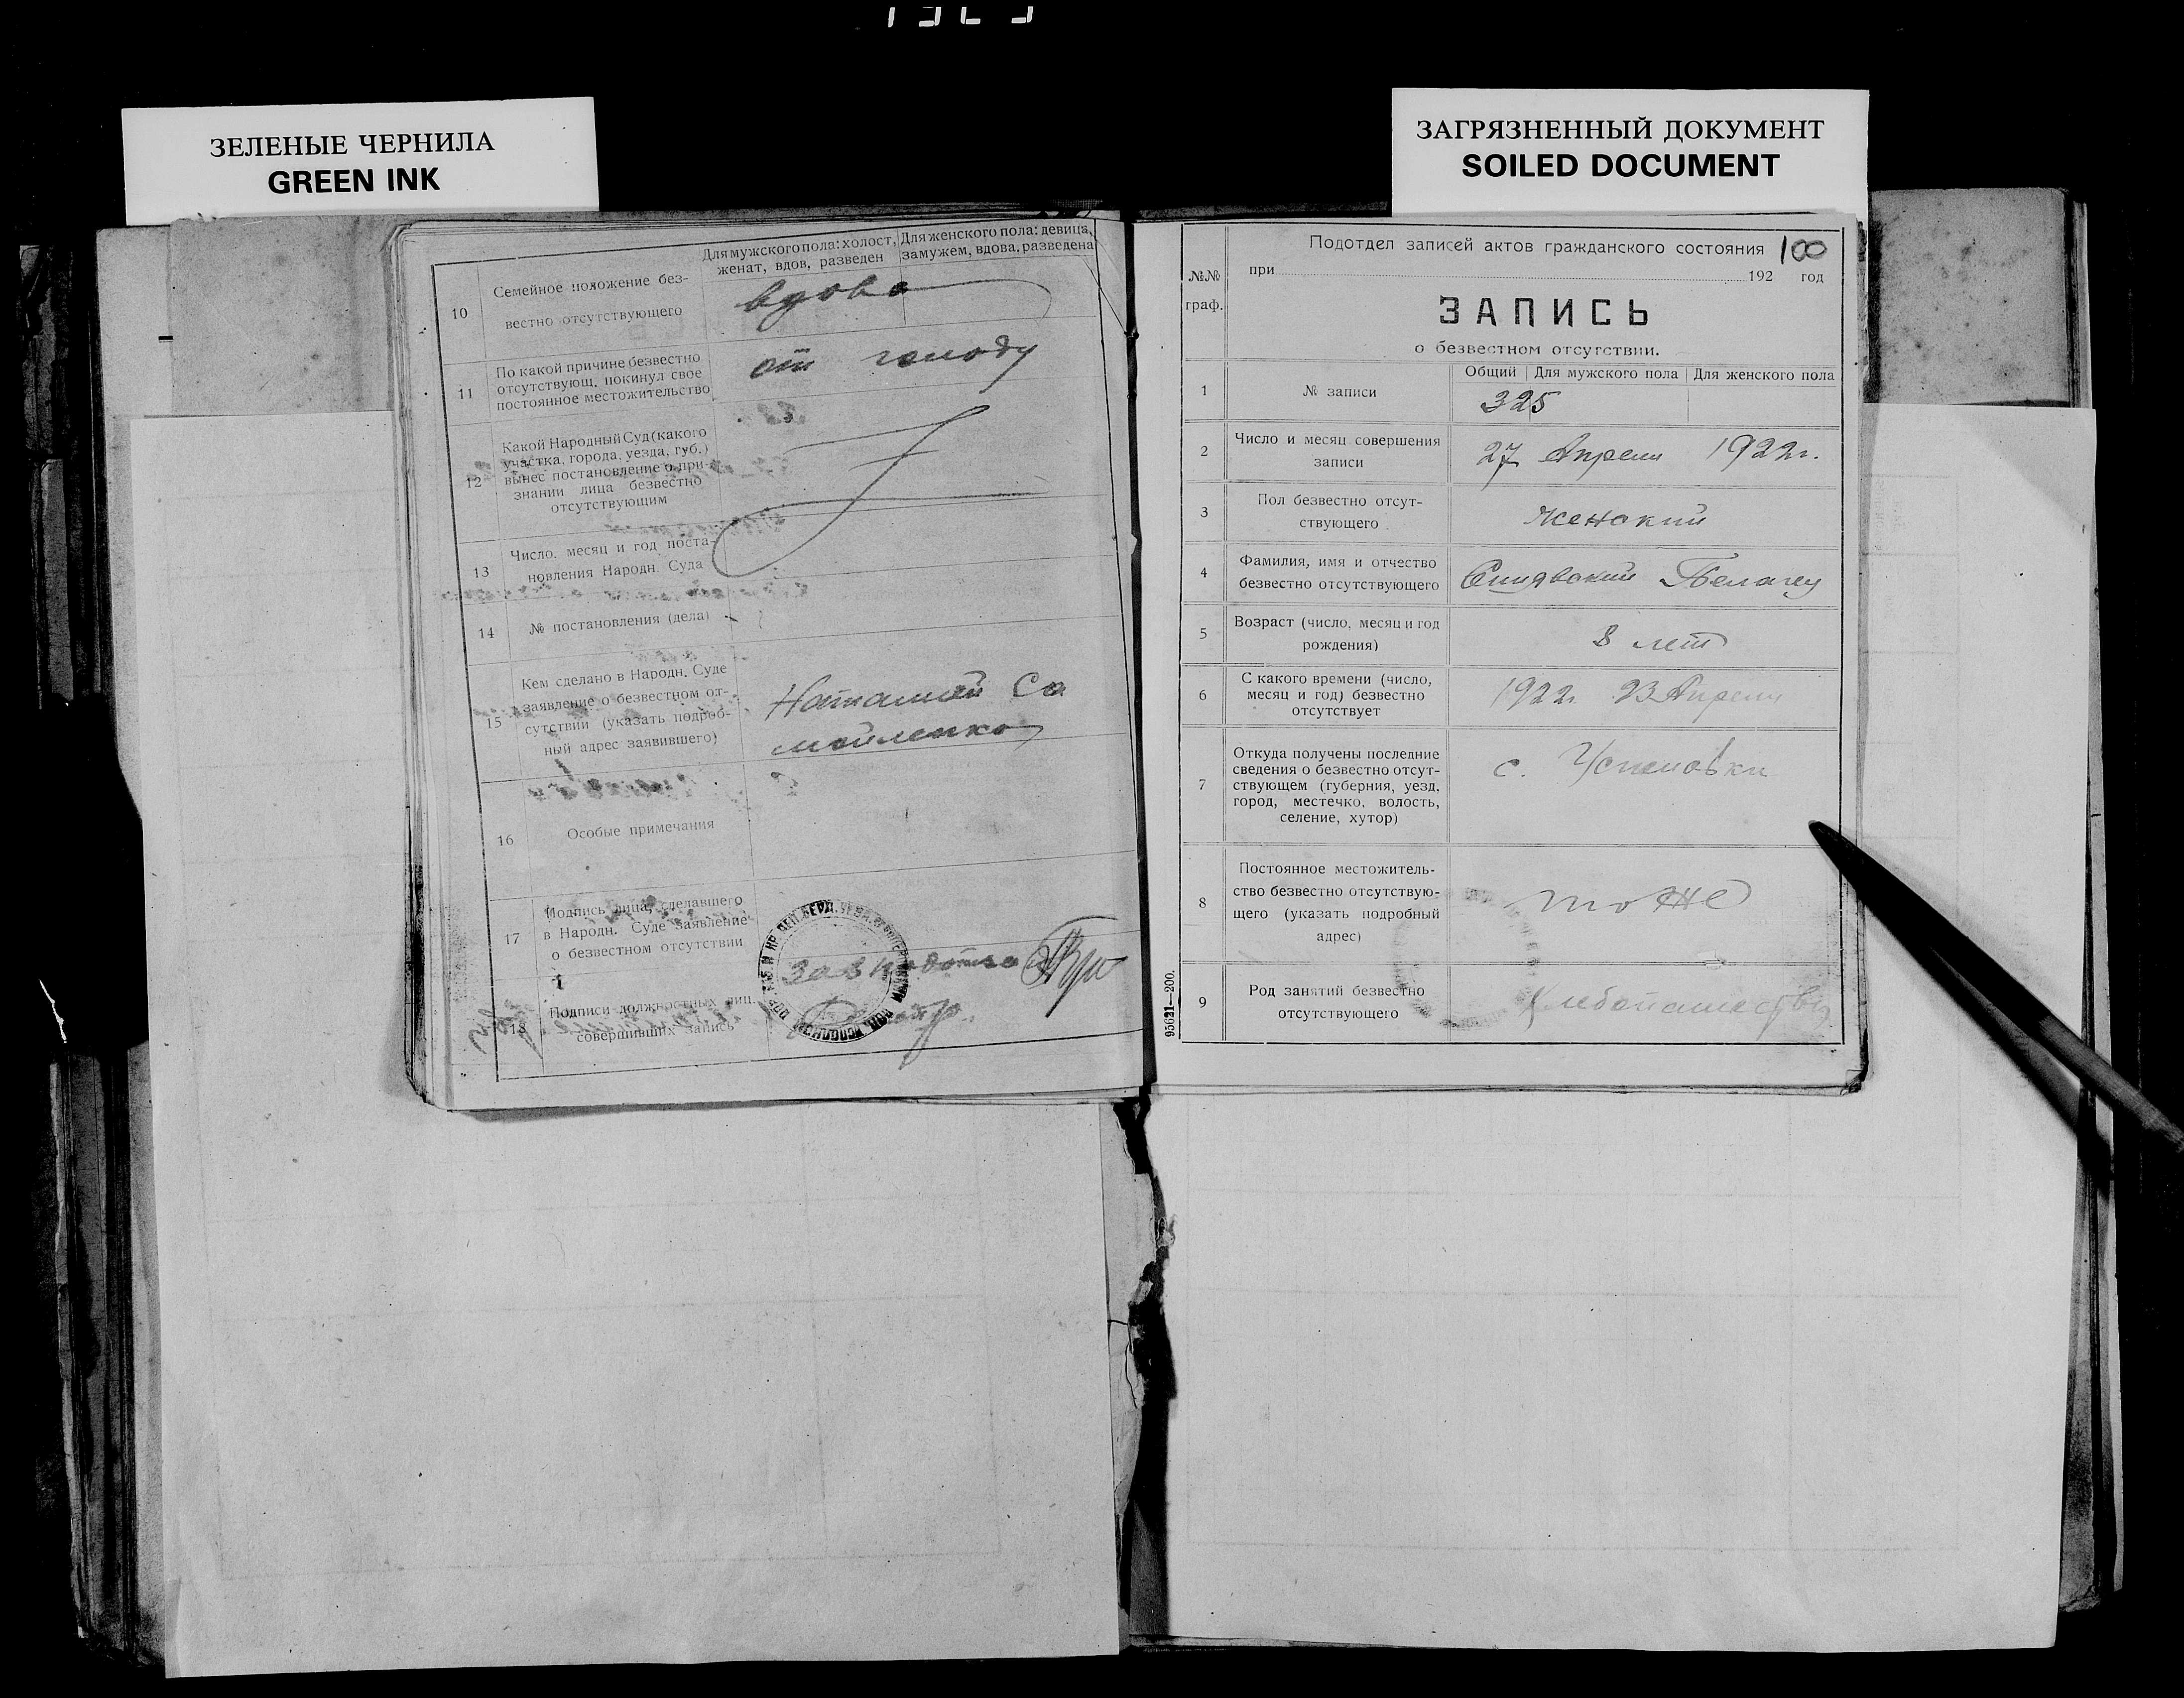 ЗЕЛЕНЫЕ ЧЕРНИЛА
GREEN INK
ЗАГРЯЗНЕННЫЙ ДОКУМЕНТ
SOILED DOCUMENT
10
Семейное положение без-
вестно отсутствующего
Для мужского пола: холост,
женат, вдов, разведен
Для женского пола: девица,
замужем, вдова, разведена
вдова
11
По какой причине безвестно
отсутствующ. покинул свое
постоянное местожительство
от голоду
12
Какой Народный Суд (какого
участка, города, уезда, губ.)
вынес постановление о при-
знании лица безвестно
отсутствующим
13
Число, месяц и год поста-
новления Народн. Суда
14
№ постановления (дела)
15
Кем сделано в Народн. Суде
заявление о безвестном от-
сутствии (указать подроб-
ный адрес заявившего)
Наталией Са
мойленко
16
Особые примечания
17
Подпись лица, сделавшего
в Народн. Суде заявление
о безвестном отсутствии
18
Подписи должностных лиц,
совершивших запись
Подотдел записей актов гражданского состояния
100
при 192 год
№№
граф.
ЗАПИСЬ
о безвестном отсутствии.
1
№ записи
Общий
Для мужского пола
Для женского пола
325
2
Число и месяц совершения
записи
27 Апреля 1922г.
3
Пол безвестно отсут-
ствующего
женский
4
Фамилия, имя и отчество
безвестно отсутствующего
5
Возраст (число, месяц и год
рождения)
8 лет
6
С какого времени (число,
месяц и год) безвестно
отсутствует
1922г. 23 Апреля
7
Откуда получены последние
сведения о безвестно отсут-
ствующем (губерния, уезд,
город, местечко, волость,
селение, хутор)
с.
8
Постоянное местожитель-
ство безвестно отсутствую-
щего (указать подробный
адрес)
тоже
9
Род занятий безвестно
отсутствующего
95621—200.